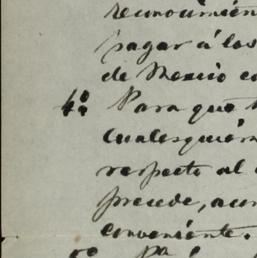 reconocimien
pagar á los
de Mexico co
4º Para que
cualesquiera
respecto al
precede, acu
conveniente.